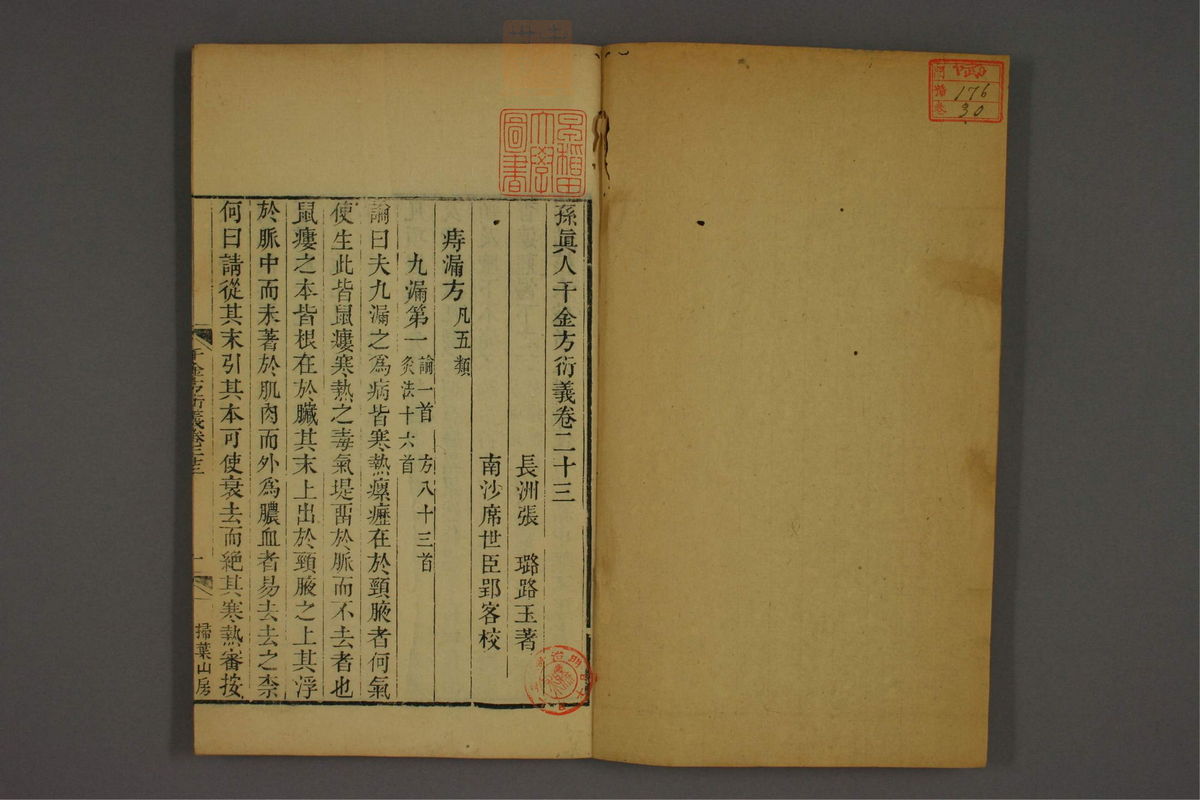 孫眞人千金方衍義卷二十三
長洲張　璐路玉著
南沙席世臣郢客校
痔漏方凡五類
九漏第一論一首　方八十三首
灸法十六首
論曰夫九漏之爲病皆寒熱瘰癧在於頸腋者何氣
使生此皆鼠瘻寒熱之毒氣堤畱於脈而不去者也
鼠瘻之本皆根在於臟其末上出於頸腋之上其浮
於脈中而未著於肌肉而外爲膿血者易去去之柰
何曰請從其末引其本可使衰去而絕其寒熱審按
千金方衍義卷二十三
一
掃葉山房
早稻田
大學
圖書
176
30